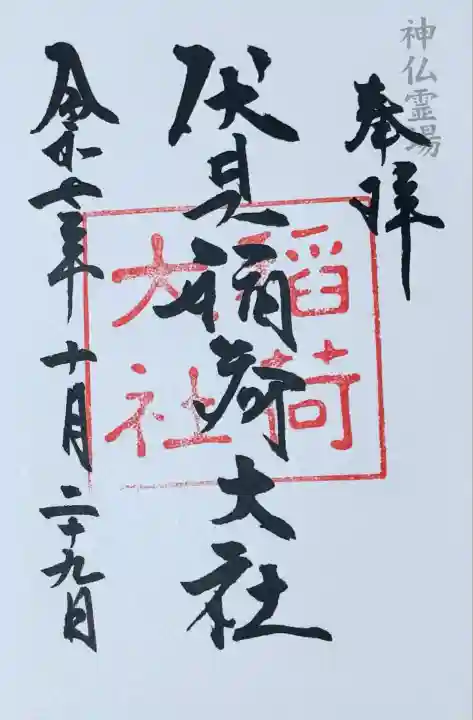 神仏霊場
奉拝
伏見稲荷大社
稲荷
大社
令和七年十月二十九日